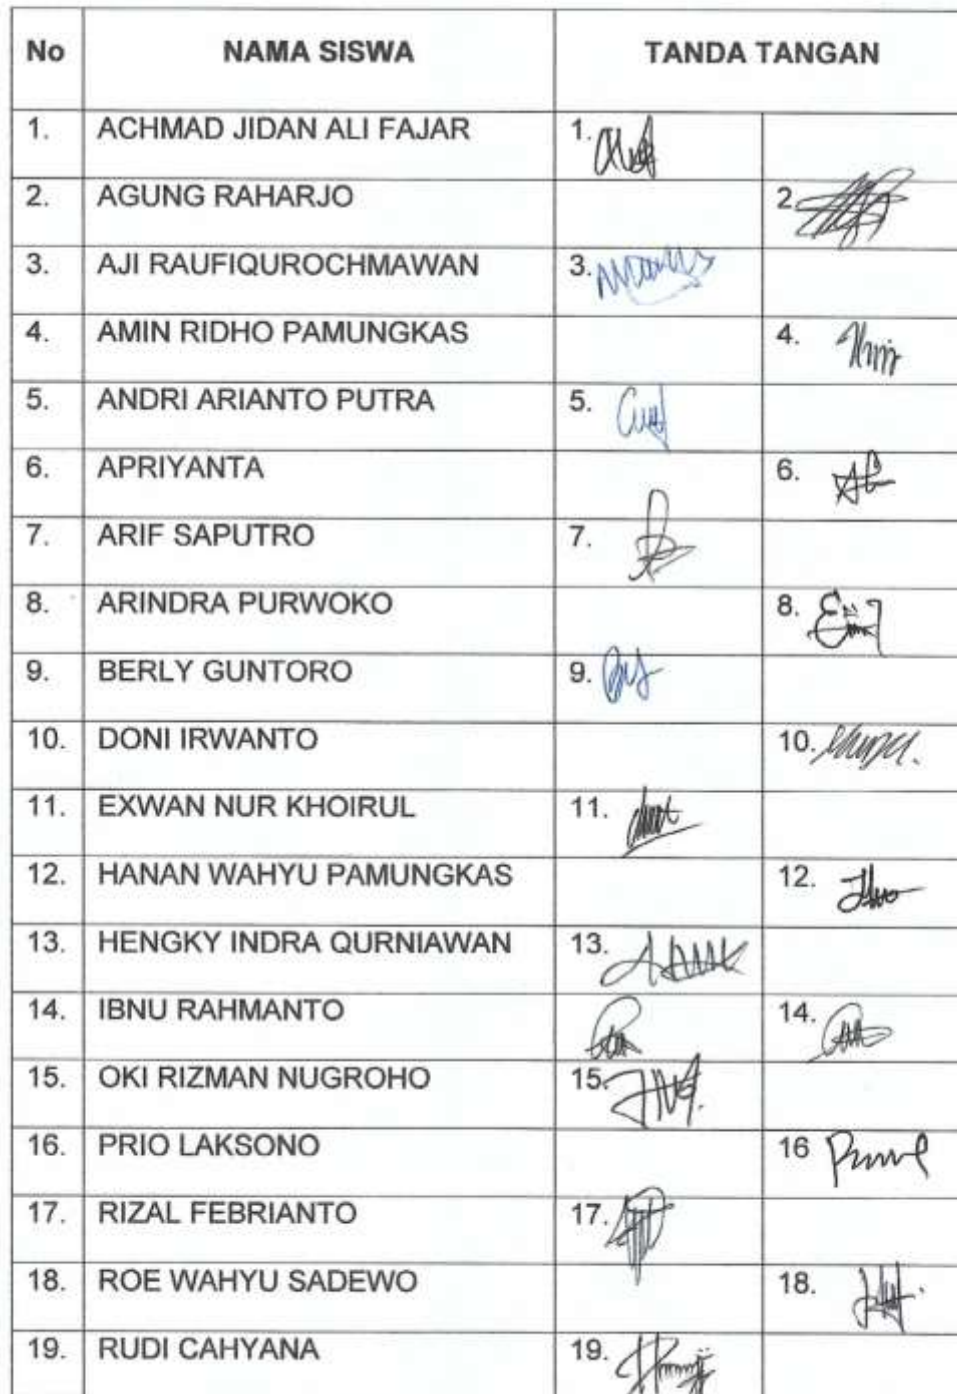 No NAMA SISWA TANDA TANGAN
1. ACHMAD JIDAN ALI FAJAR 1.
2. AGUNG RAHARJO 2.
3. AJI RAUFIQUROCHMAWAN 3.
4. AMIN RIDHO PAMUNGKAS 4.
5. ANDRI ARIANTO PUTRA 5.
6. APRIYANTA 6.
7. ARIF SAPUTRO 7.
8. ARINDRA PURWOKO 8.
9. BERLY GUNTORO 9.
10. DONI IRWANTO 10.
11. EXWAN NUR KHOIRUL 11.
12. HANAN WAHYU PAMUNGKAS 12.
13. HENGKY INDRA QURNIAWAN 13.
14. IBNU RAHMANTO 14.
15. OKI RIZMAN NUGROHO 15.
16. PRIO LAKSONO 16
17. RIZAL FEBRIANTO 17.
18. ROE WAHYU SADEWO 18.
19. RUDI CAHYANA 19.